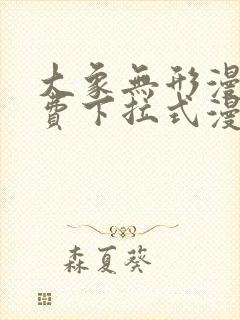 大象無形漫
費下拉式漫
森夏葵